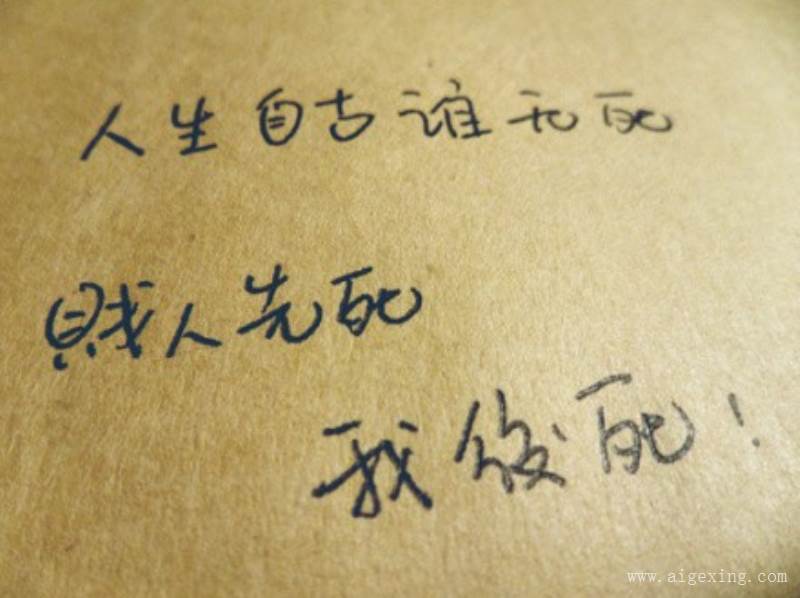 人生自古谁无死
賤人先死
我后死!
www.aigexing.com